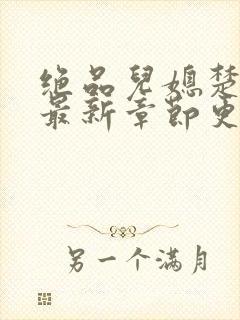 绝品儿媳楚
最新章节更
另一个满月